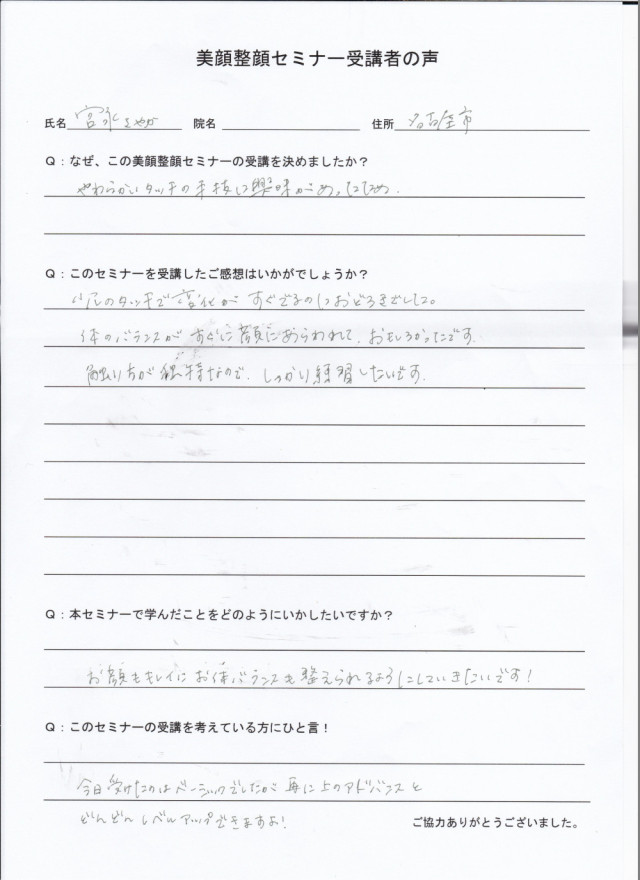 美顔整顔セミナー受講者の声
氏名 宮永さやか 院名 住所 名古屋市
Q：なぜ、この美顔整顔セミナーの受講を決めましたか？
やわらかいタッチの手技に興味があったため.
Q：このセミナーを受講したご感想はいかがでしょうか？
のタッチで変化がすぐでるのにおどろきでした。
体のバランスがすぐに顔にあらわれて、おもしろかったです.
触り方が独特なので、しっかり練習したいです.
Q：本セミナーで学んだことをどのようにいかしたいですか？
お顔もキレイにお体バランスも整えられるようにしていきたいです！
Q：このセミナーの受講を考えている方にひと言！
今日受けたのはベーシックでしたが 再に上のアドバンスと
どんどんレベルアップできますよ！
ご協力ありがとうございました。